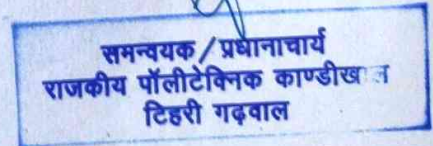 समन्वयक / प्रधानाचार्य
राजकीय पॉलीटेक्निक काण्डीखाल
टिहरी गढ़वाल